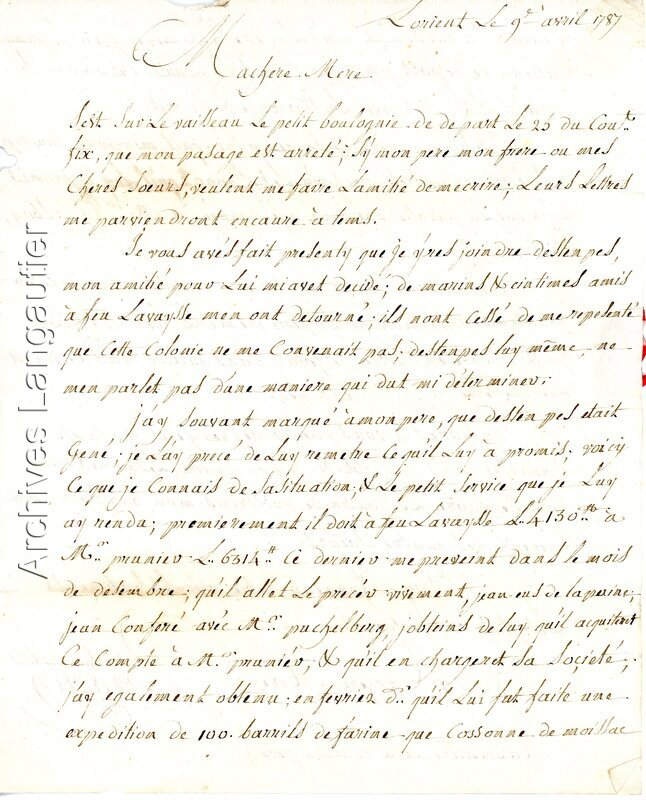 Lorient Le 9e avril 1787
Machere Mere
Sest Sur Le vaisseau Le petit boulognie de depart Le 25 du Cout.
fix, que mon pasage est arreté; Sy mon pere mon frere ou mes
Cheres Sœurs, veulent me faire L'amitié de mecrire; Leurs Lettres
me parviendront encaure à tems.
Je vous avés fait presenty que Je yres joindre destenpes,
mon amitié pour Lui miavet décidé; de marins & eintimes amis
à feu Lavaysse men ont detourné; ils nont Cessé de me represente
que Cette Colonie ne me Convenait pas; destenpes luy même, ne
men parlet pas d'une maniere qui dut mi déterminer.
j'ay souvant marqué à mon pere, que desten pes etait
Gené; je L'ay precé de Luy remetre Ce qu'il Luy à promis; voicy
Ce que je Connais de sa Situation, & Le petit Service que je Luy
ay rendu; premierement il doit à feu Lavaysse L. 4130 tt à
Mr. prunier L. 6314 tt Ce dernier me preveint dans le mois
de desembre; qu'il allet Le precér vivement, jean eus de la peine,
jean Conferé avec Mr. puchelberg, jobteins de luy qu'il acquiteret
Ce Compte à Mr. pruniér, & qu'il en chargeret sa Societé;
j'ay egalement obtenu; en fevriez d.r qu'il Lui fut faite une
expedition de 100. barrils de farine que Cossonne de moissac
Archives Langautier